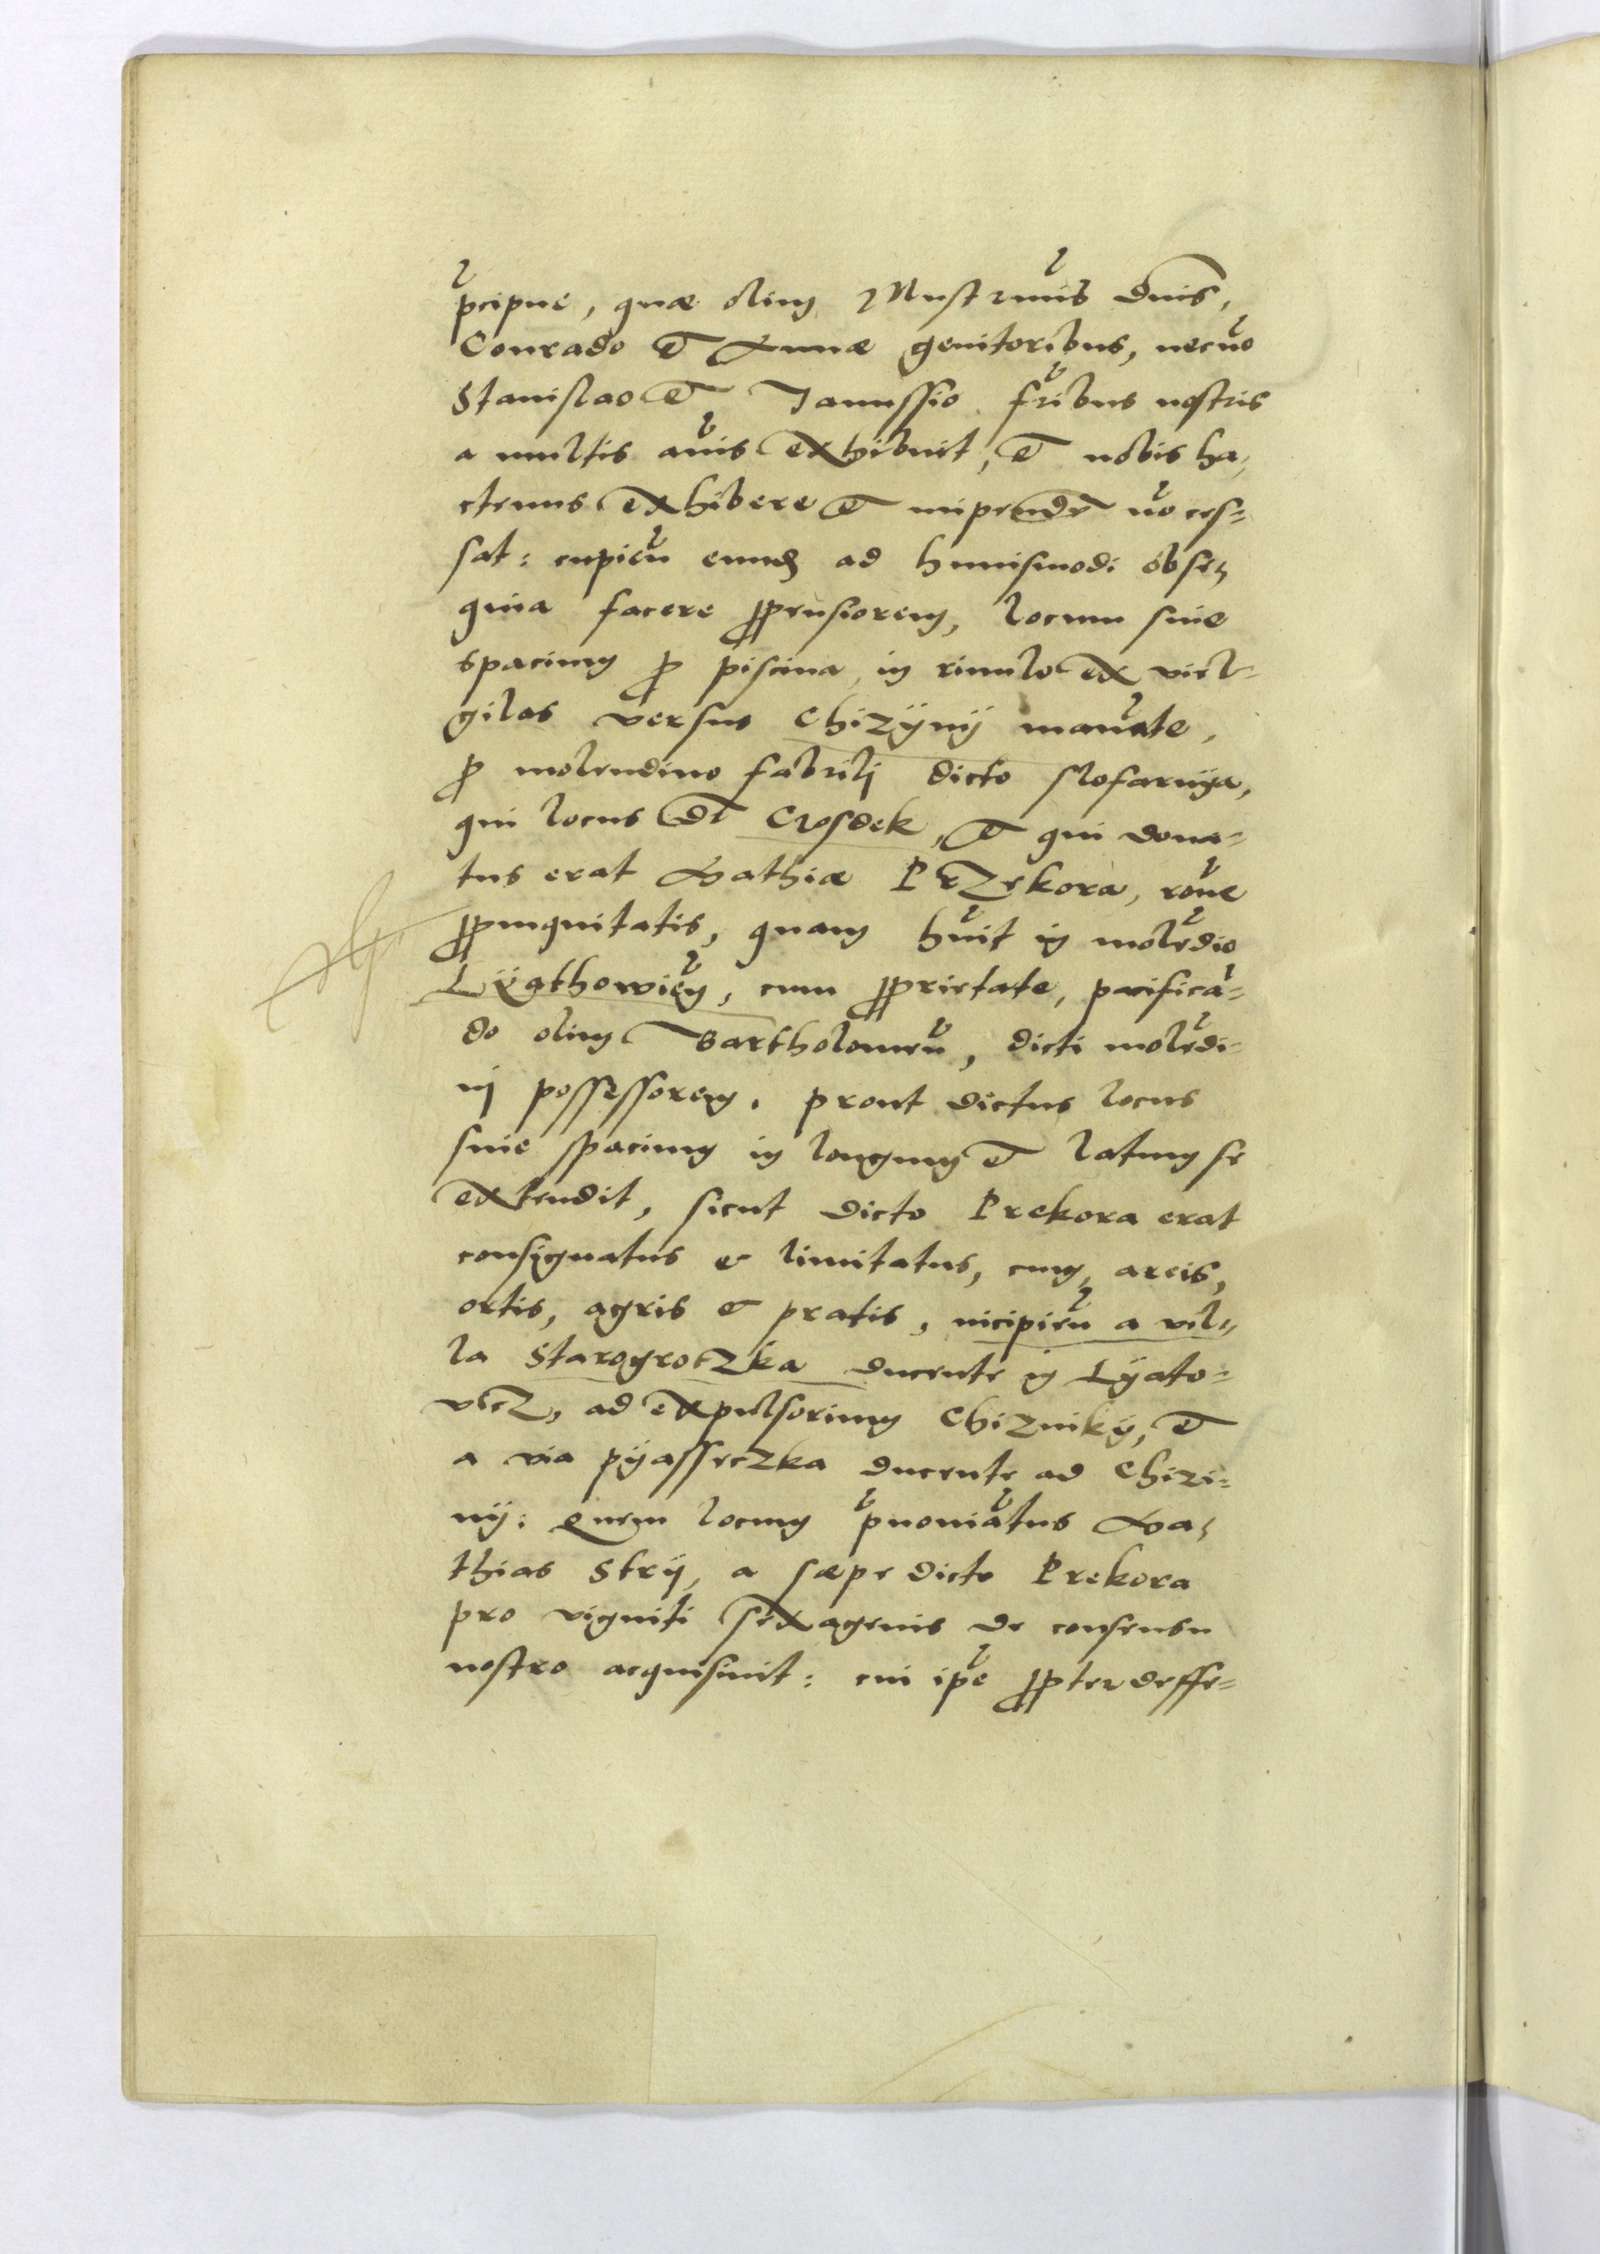 pcipue, quæ olim Illustrimis Dnis,
Conrado et Annæ genitoribus, necno
Stanislao et Janussio fribus nostris
a multis anis exhibuit, et nobis ha-
ctenus exhibere et impendere no ces-
sat: cupien eund ad huiusmodi obse-
quia facere propensiorem, locum siue
spacium p piscina, in riuulo ex viel-
gilas versus Chizyny manate,
p molendino fabrili dicto slofarnya,
qui locus dt Crosdek, et qui dona-
tus erat Mathiæ Przekora, rone
propinquitatis, quam huit in molēdio
Lyathowien, cum proprietate, pacificā-
do olim Bartholomeū, dicti molēdi-
nj possessorem. prout dictus locus
siue spacium in longum et latum se
extendit, sicut dicto Prekora erat
consignatus et limitatus, cum areis,
ortis, agris et pratis, incipien a vil-
la Starogroczka ducente in Lyato-
vicz, ad expulsorium Chizniky, et
a via pyasseczka ducente ad Chizi-
ny: Quem locum pnoniatus Ma-
thias Stry, a sæpe dicto Prekora
pro viginti sexagenis de consensu
nostro acquisiuit: cui ipe propter deffe-